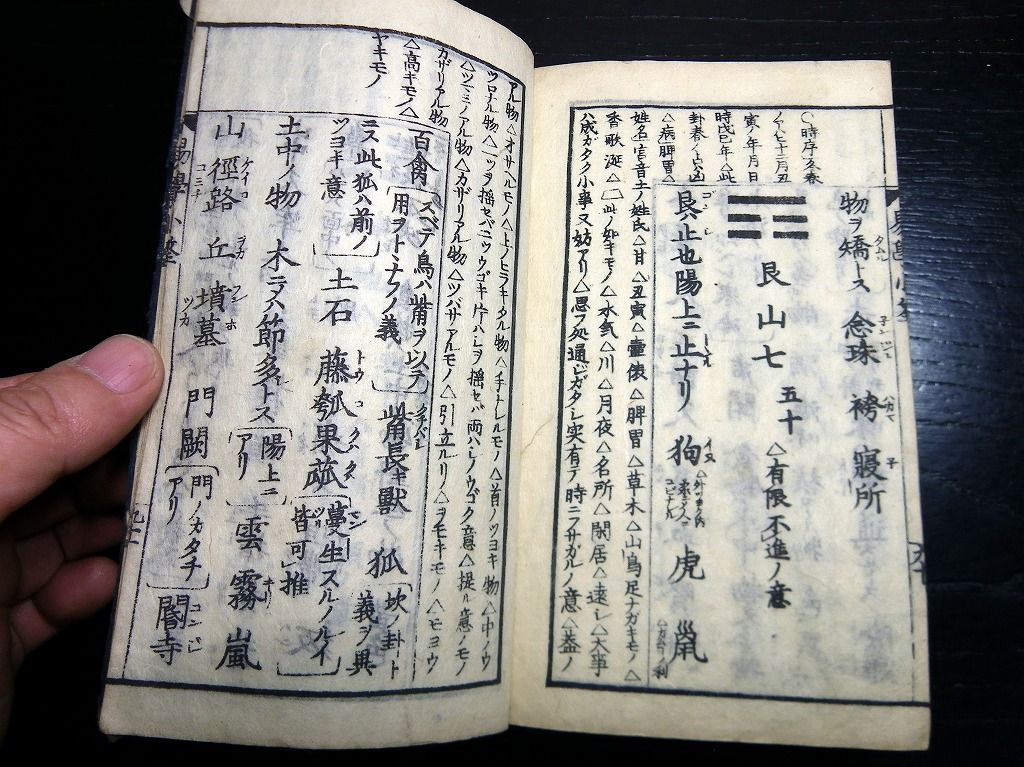 物ヲ矯トス 念珠 袴 寢所
艮山七 五十 △有限不進ノ意
艮止也陽上ニ止ナリ 狗 虎 鼠
○時序冬春
ノ間十二月丑
寅ノ年月日
時戊巳年△此
△病脾胃△
姓名宮音土ノ姓氏△甘△丑寅△壷俵△脾胃△草木△山鳥足ナガキモノ△
香歌涎△此ノ如キモノ△水氣△川△月夜△名所△閑居△遠シ△大事
ハ成ガタク小事又妨アリ△思フ処通ジガタシ実有テ時ニフサガルノ意△蓋ノ
アル物△オサヘルモノ△上ノヒラキタル物△手ナレルモノ△首ノツヨキ物△中ノウ
ツロナル物△一ツヲ揺セバニツウゴキ片ハシヲ揺セバ両ハシノウゴク意△提ル意ノモノ
△ツマミノアル物△カザリアル物△ツバサアルモノ△引立ルリ△ヲモキモノ△モヨウ
カザリアル物
△高キモノ△
ヤキモノ
百禽 スベテ鳥ハ觜ヲ以テ
用ヲトヽナフノ義 觜長キ獸 狐 坎ノ卦ト
義ヲノ異
ニス此狐ハ前ノ
ツヨキ意 土石 藤瓠果蓏 蔓生スルノルイ
皆可推
土中ノ物 木ニテハ節多トス 陽上ニ
アリ 雲霧嵐
山徑路 丘墳墓 門闕 門ノカタチ
アリ 閽寺